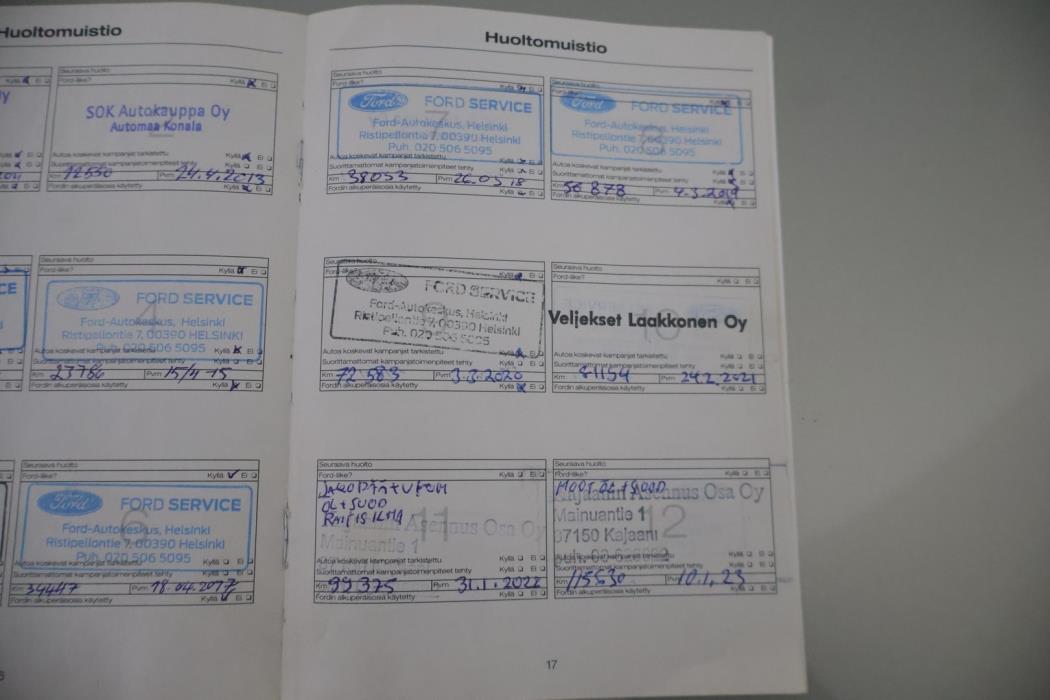 Huoltomuistio
Kyllä Ei
Seuraava huolto
Ford-liike? Kyllä Ei
SOK Autokauppa Oy
Automaa Konala
Autoa koskevat kampanjat tarkistettu Kyllä Ei
Suorittamattomat kampanjatoimenpiteet tehty Kyllä Ei
Km Pvm 24.4.2013
Fordin alkuperäisosia käytetty Kyllä Ei
Seuraava huolto
Ford-liike? Kyllä Ei
4
Ford FORD SERVICE
Ford-Autokeskus, Helsinki
Ristipellontie 7, 00390 HELSINKI
Puh. 020 506 5095
Autoa koskevat kampanjat tarkistettu Kyllä Ei
Suorittamattomat kampanjatoimenpiteet tehty Kyllä Ei
Km 23786 Pvm 15/4 -15
Fordin alkuperäisosia käytetty Kyllä Ei
Seuraava huolto
Ford-liike? Kyllä Ei
6
Ford FORD SERVICE
Ford-Autokeskus, Helsinki
Ristipellontie 7, 00390 HELSINKI
Puh. 020 506 5095
Autoa koskevat kampanjat tarkistettu Kyllä Ei
Suorittamattomat kampanjatoimenpiteet tehty Kyllä Ei
Km 34447 Pvm 18.04.2017
Fordin alkuperäisosia käytetty Kyllä Ei
Huoltomuistio
Seuraava huolto
Ford-liike? Kyllä Ei
7
Ford FORD SERVICE
Ford-Autokeskus, Helsinki
Ristipellontie 7, 00390 Helsinki
Puh. 020 506 5095
Autoa koskevat kampanjat tarkistettu Kyllä Ei
Suorittamattomat kampanjatoimenpiteet tehty Kyllä Ei
Km 38053 Pvm 26.03.18
Fordin alkuperäisosia käytetty Kyllä Ei
Seuraava huolto
Ford FORD SERVICE
Ford-Autokeskus, Helsinki
Ristipellontie 7, 00390 Helsinki
Puh. 020 506 5095
Autoa koskevat kampanjat tarkistettu Kyllä Ei
Suorittamattomat kampanjatoimenpiteet tehty Kyllä Ei
Km 56 878 Pvm 4.3.2019
Fordin alkuperäisosia käytetty Kyllä Ei
Seuraava huolto
Ford-liike? Kyllä Ei
FORD SERVICE
Ford-Autokeskus, Helsinki
Ristipellontie 7, 00390 Helsinki
Puh. 020 506 5095
Autoa koskevat kampanjat tarkistettu Kyllä Ei
Suorittamattomat kampanjatoimenpiteet tehty Kyllä Ei
Km 72 583 Pvm 3.3.2020
Fordin alkuperäisosia käytetty Kyllä Ei
Seuraava huolto
Ford-liike? Kyllä Ei
10
Veljekset Laakkonen Oy
Autoa koskevat kampanjat tarkistettu Kyllä Ei
Suorittamattomat kampanjatoimenpiteet tehty Kyllä Ei
Km 81154 Pvm 24.2.2021
Fordin alkuperäisosia käytetty Kyllä Ei
Seuraava huolto
Ford-liike? Kyllä Ei
ÖL + SUOD
RAITISILMA
11
Asennus Osa Oy
Mainuantie 1
Autoa koskevat kampanjat tarkistettu Kyllä Ei
Suorittamattomat kampanjatoimenpiteet tehty Kyllä Ei
Km 99 375 Pvm 31.1.2022
Fordin alkuperäisosia käytetty Kyllä Ei
Seuraava huolto
Ford-liike? Kyllä Ei
MOOT. ÖL + SUOD
Kajaanin Asennus Osa Oy
Mainuantie 1
12
87150 Kajaani
Autoa koskevat kampanjat tarkistettu Kyllä Ei
Suorittamattomat kampanjatoimenpiteet tehty Kyllä Ei
Km 115530 Pvm 10.1.23
Fordin alkuperäisosia käytetty Kyllä Ei
17